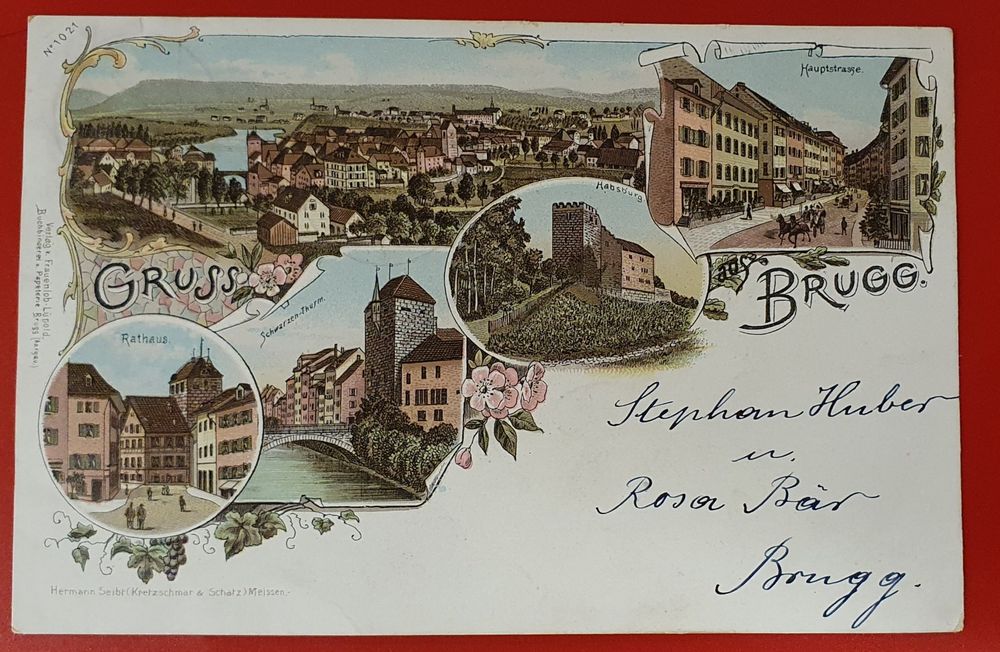 No 1021
Hauptstrasse.
Habsburg
GRUSS aus BRUGG.
Schwarzen-Thurm.
Rathaus.
Verlag v. Frauenlob-Lüpold,
Buchbinderei u. Papeterie, Brugg (Aargau)
Stephan Huber
u.
Rosa Bär
Brugg.
Hermann Seibt (Kretzschmar & Schatz) Meissen.-